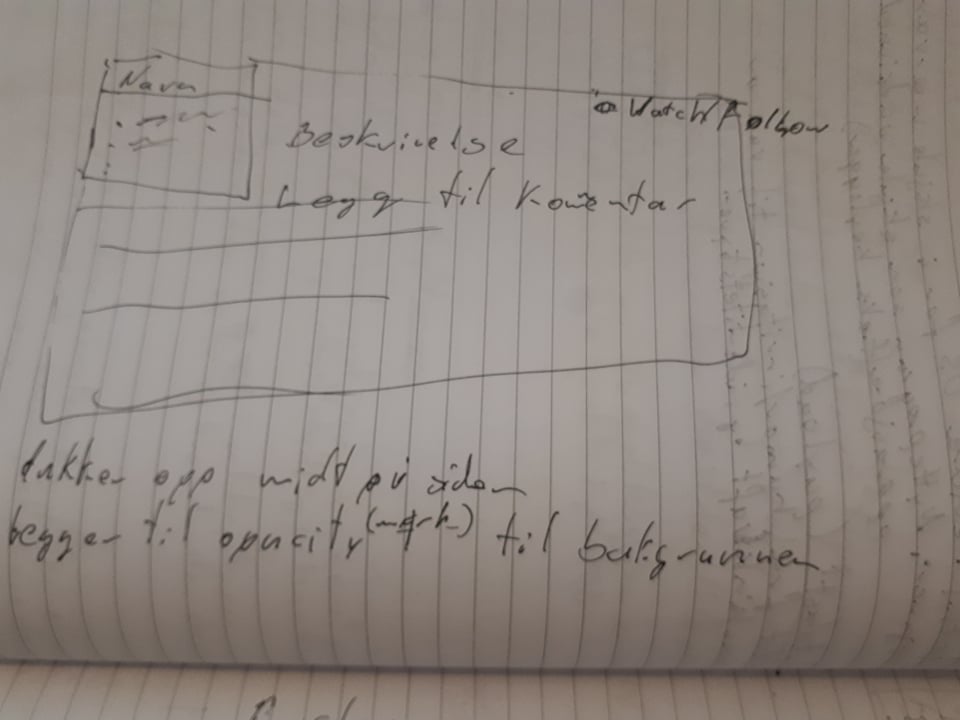 Navn
Watch/Follow
Beskrivelse
Legg til Komentar
dukker opp midt på siden
legger til opacity (mørk) til bakgrunnen